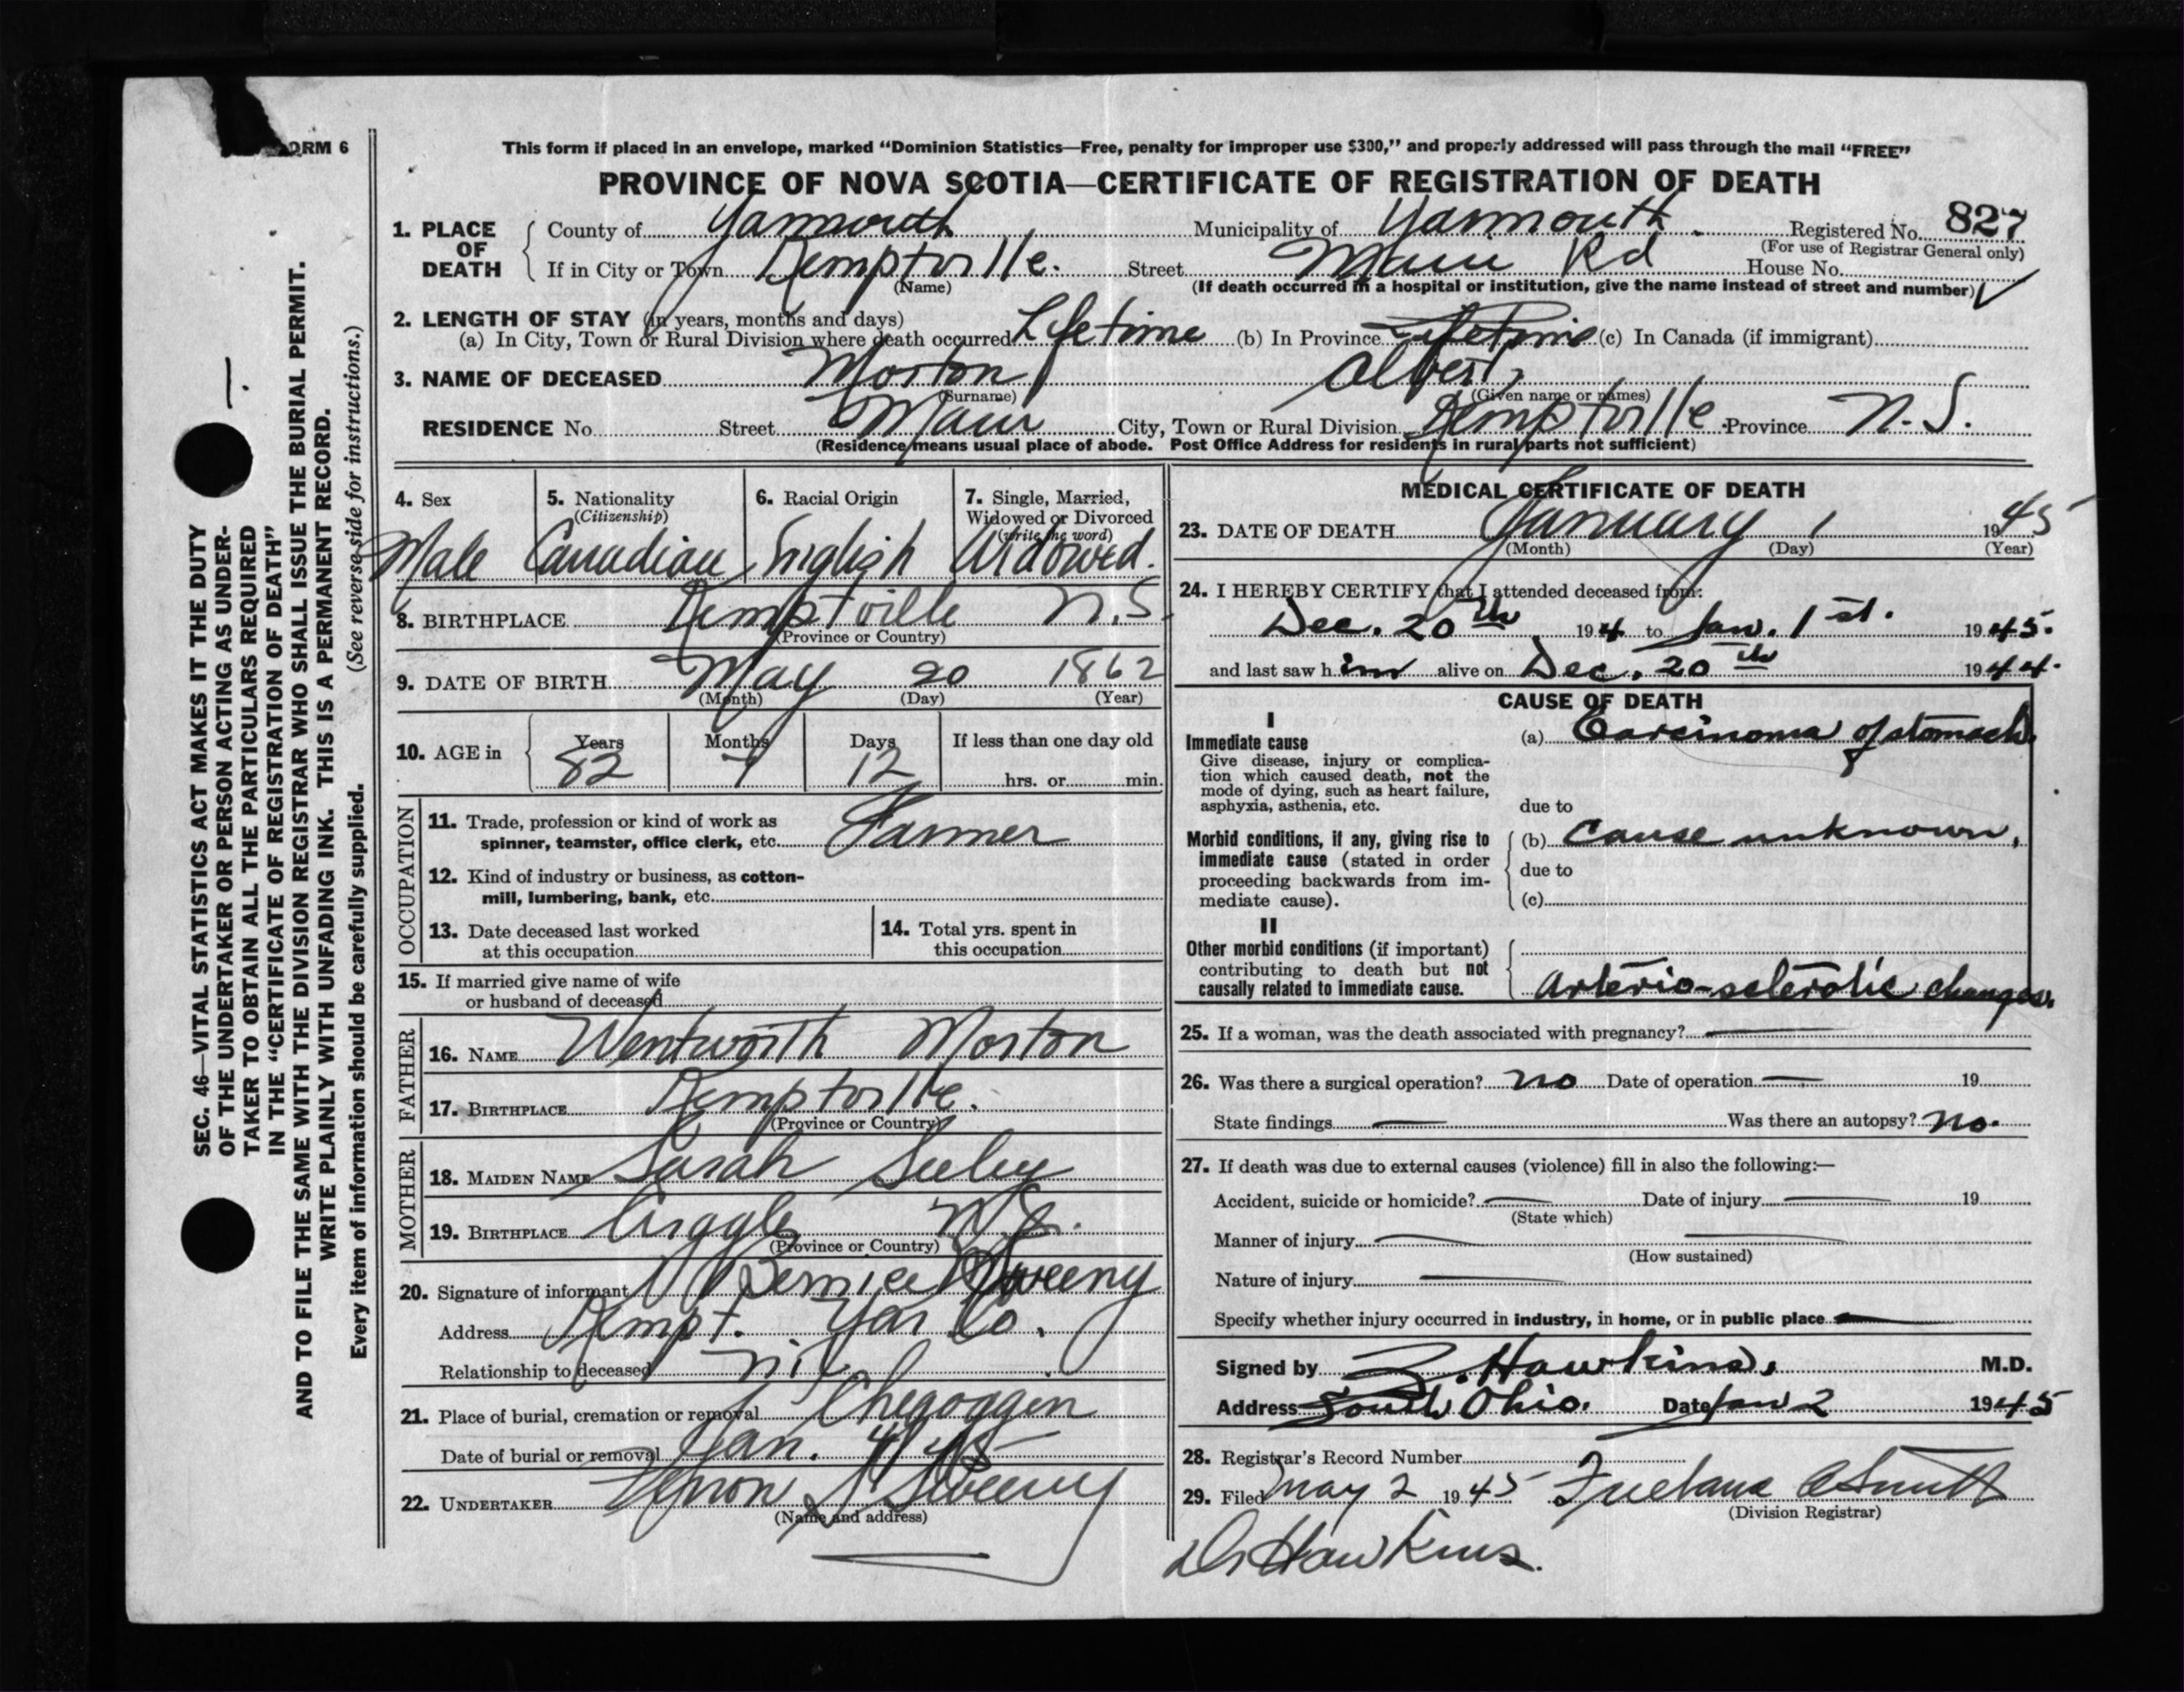 FORM 6
This form if placed in an envelope, marked “Dominion Statistics—Free, penalty for improper use $300,” and properly addressed will pass through the mail “FREE”
PROVINCE OF NOVA SCOTIA—CERTIFICATE OF REGISTRATION OF DEATH
1. PLACE OF DEATH County of Yarmouth Municipality of Yarmouth Registered No. 827
(For use of Registrar General only)
If in City or Town Kemptville. Street Main Rd House No.
(Name) (If death occurred in a hospital or institution, give the name instead of street and number)
2. LENGTH OF STAY (in years, months and days)
(a) In City, Town or Rural Division where death occurred Lifetime (b) In Province Lifetime (c) In Canada (if immigrant)
3. NAME OF DECEASED Morton Albert,
(Surname) (Given name or names)
RESIDENCE No. Street Main City, Town or Rural Division Kemptville Province N.S.
(Residence means usual place of abode. Post Office Address for residents in rural parts not sufficient)
4. Sex Male
5. Nationality (Citizenship) Canadian
6. Racial Origin English
7. Single, Married, Widowed or Divorced (write the word) Widowed.
8. BIRTHPLACE Kemptville N.S.
(Province or Country)
9. DATE OF BIRTH May 20 1862
(Month) (Day) (Year)
10. AGE in Years 82 Months 7 Days 12 If less than one day old
hrs. or min.
OCCUPATION
11. Trade, profession or kind of work as
spinner, teamster, office clerk, etc. Farmer
12. Kind of industry or business, as cotton-
mill, lumbering, bank, etc.
13. Date deceased last worked
at this occupation
14. Total yrs. spent in
this occupation
15. If married give name of wife
or husband of deceased
FATHER
16. NAME Wentworth Morton
17. BIRTHPLACE Kemptville.
(Province or Country)
MOTHER
18. MAIDEN NAME Sarah Seeley
19. BIRTHPLACE N.S.
(Province or Country)
20. Signature of informant Bernice Sweeny
Address Kempt. Yar Co.
Relationship to deceased nil
21. Place of burial, cremation or removal Chegoggen
Date of burial or removal Jan. 4 45
22. UNDERTAKER Vernon S Sweeny
(Name and address)
MEDICAL CERTIFICATE OF DEATH
23. DATE OF DEATH January 1 1945
(Month) (Day) (Year)
24. I HEREBY CERTIFY that I attended deceased from:
Dec. 20th 194 4 to Jan. 1st. 1945.
and last saw him alive on Dec. 20th 1944.
CAUSE OF DEATH
I
Immediate cause (a) Carcinoma of stomach.
Give disease, injury or complica-
tion which caused death, not the
mode of dying, such as heart failure,
asphyxia, asthenia, etc. due to
Morbid conditions, if any, giving rise to (b) Cause unknown.
immediate cause (stated in order
proceeding backwards from im- due to
mediate cause). (c)
II
Other morbid conditions (if important)
contributing to death but not
causally related to immediate cause. Arterio-sclerotic changes.
25. If a woman, was the death associated with pregnancy? —
26. Was there a surgical operation? no Date of operation — 19
State findings — Was there an autopsy? no.
27. If death was due to external causes (violence) fill in also the following:—
Accident, suicide or homicide? — Date of injury — 19
(State which)
Manner of injury —
(How sustained)
Nature of injury —
Specify whether injury occurred in industry, in home, or in public place —
Signed by Z. Hawkins, M.D.
Address South Ohio. Date Jan 2 1945
28. Registrar's Record Number
29. Filed May 2 1945 Smith
(Division Registrar)
Dr Hawkins.
SEC. 46—VITAL STATISTICS ACT MAKES IT THE DUTY
OF THE UNDERTAKER OR PERSON ACTING AS UNDER-
TAKER TO OBTAIN ALL THE PARTICULARS REQUIRED
IN THE “CERTIFICATE OF REGISTRATION OF DEATH”
AND TO FILE THE SAME WITH THE DIVISION REGISTRAR WHO SHALL ISSUE THE BURIAL PERMIT.
WRITE PLAINLY WITH UNFADING INK. THIS IS A PERMANENT RECORD.
Every item of information should be carefully supplied. (See reverse side for instructions.)